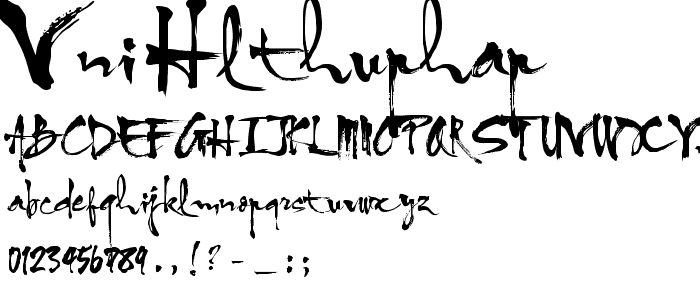 Vni Hl thuphap
ABCDEFGHIJKLMNOPQRSTUVWXYZ
abcdefghijklmnopqrstuvwxyz
0123456789.,!?-_:;